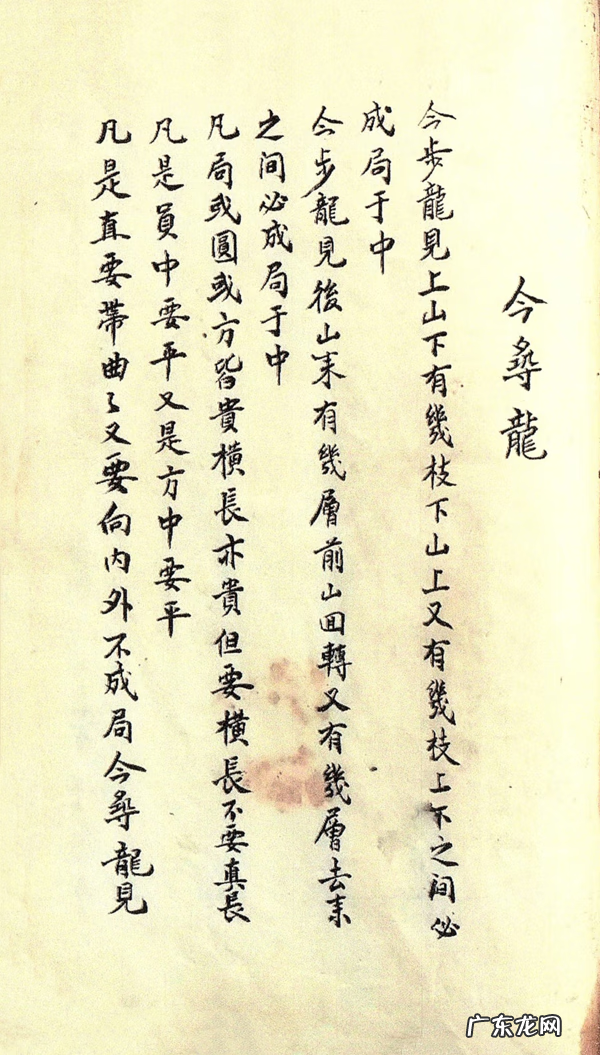 今尋龍
今步龍見上山下有幾枝下山上又有幾枝上下之间必
成局于中
今步龍見後山来有幾層前山回轉又有幾層去来
之间必成局于中
凡局或圓或方皆貴横長亦貴但要横長不要真長
凡是員中要平又是方中要平
凡是直要帶曲々又要向内外不成局今尋龍見
广东龙网